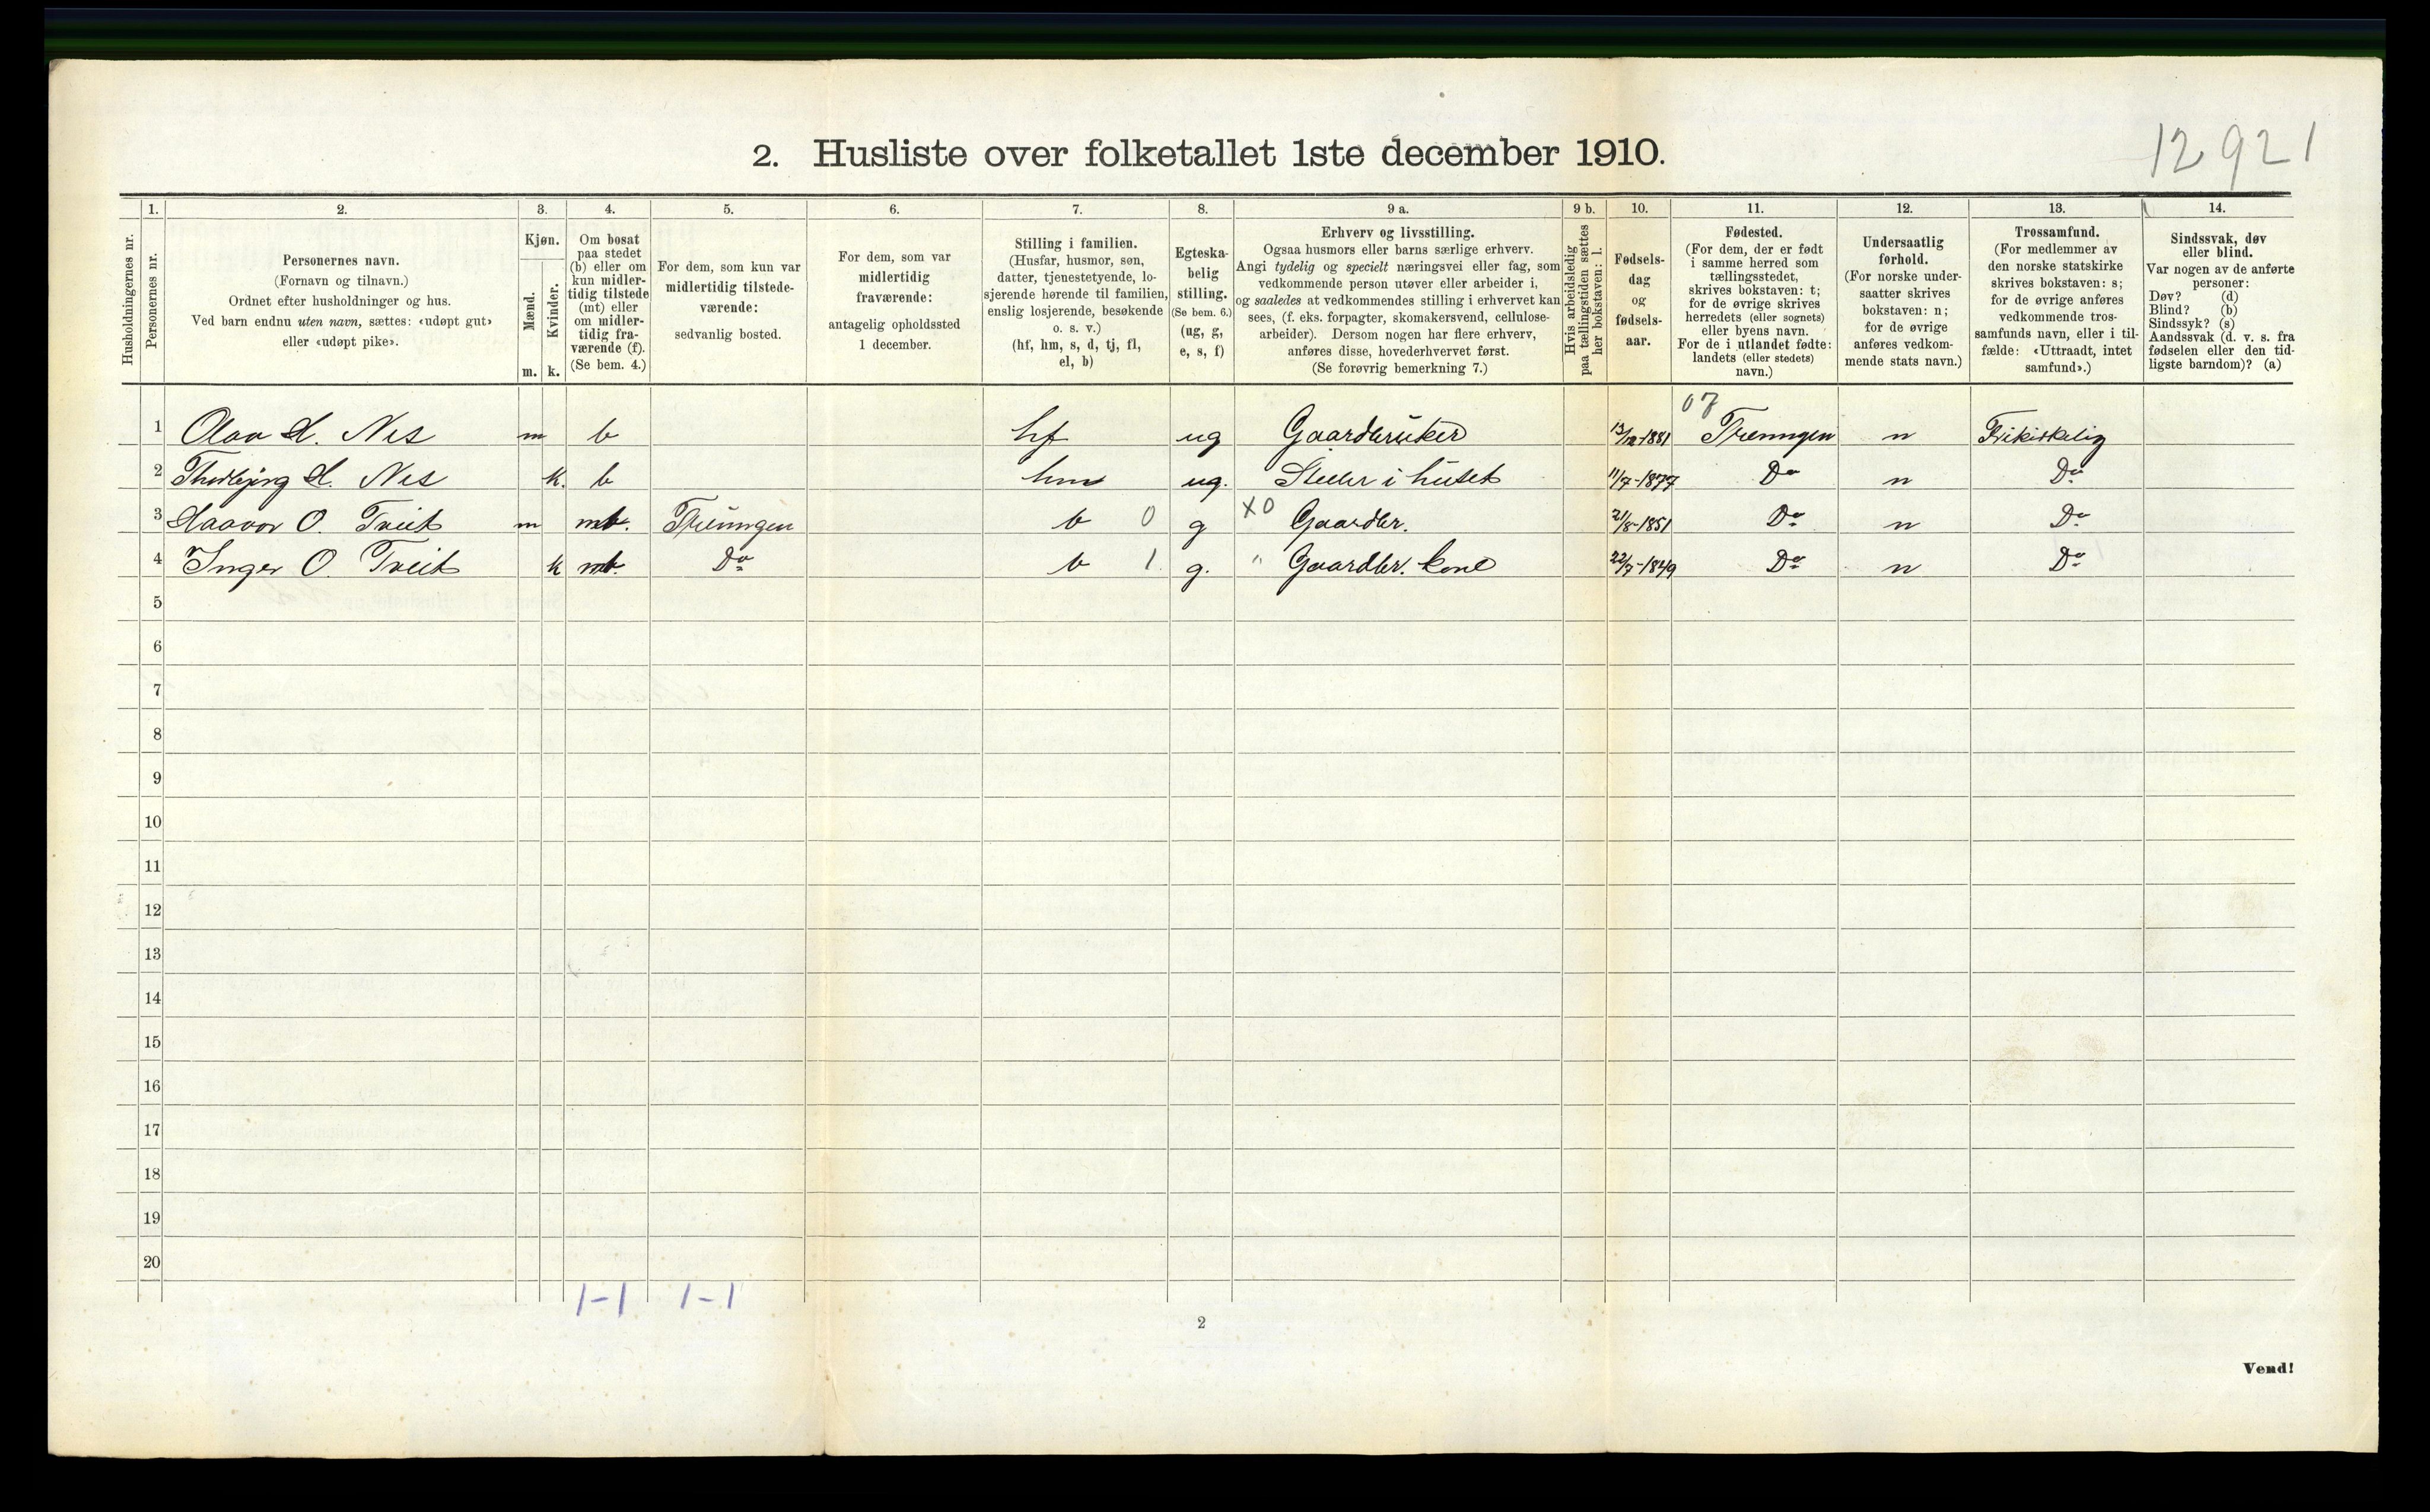 12921
2. Husliste over folketallet 1ste december 1910.
Husholdningernes nr.
1.
Personernes nr.
2.
Personernes navn.
(Fornavn og tilnavn.)
Ordnet efter husholdninger og hus.
Ved barn endnu uten navn, sættes: «udøpt gut»
eller «udøpt pike».
3.
Kjøn.
Mænd.
Kvinder.
m. k.
4.
Om bosat
paa stedet
(b) eller om
kun midler-
tidig tilstede
(mt) eller
om midler-
tidig fra-
værende (f).
(Se bem. 4.)
5.
For dem, som kun var
midlertidig tilstede-
værende:
sedvanlig bosted.
6.
For dem, som var
midlertidig
fraværende:
antagelig opholdssted
1 december.
7.
Stilling i familien.
(Husfar, husmor, søn,
datter, tjenestetyende, lo-
sjerende hørende til familien,
enslig losjerende, besøkende
o. s. v.)
(hf, hm, s, d, tj, fl,
el, b)
8.
Egteska-
belig
stilling.
(Se bem. 6.)
(ug, g,
e, s, f)
9 a.
Erhverv og livsstilling.
Ogsaa husmors eller barns særlige erhverv.
Angi tydelig og specielt næringsvei eller fag, som
vedkommende person utøver eller arbeider i,
og saaledes at vedkommendes stilling i erhvervet kan
sees, (f. eks. forpagter, skomakersvend, cellulose-
arbeider). Dersom nogen har flere erhverv,
anføres disse, hovederhvervet først.
(Se forøvrig bemerkning 7.)
9 b.
Hvis arbeidsledig
paa tællingstiden sættes
her bokstaven: l.
10.
Fødsels-
dag
og
fødsels-
aar.
11.
Fødested.
(For dem, der er født
i samme herred som
tællingsstedet,
skrives bokstaven: t;
for de øvrige skrives
herredets (eller sognets)
eller byens navn.
For de i utlandet fødte:
landets (eller stedets)
navn.)
12.
Undersaatlig
forhold.
(For norske under-
saatter skrives
bokstaven: n;
for de øvrige
anføres vedkom-
mende stats navn.)
13.
Trossamfund.
(For medlemmer av
den norske statskirke
skrives bokstaven: s;
for de øvrige anføres
vedkommende tros-
samfunds navn, eller i til-
fælde: «Uttraadt, intet
samfund».)
14.
Sindssvak, døv
eller blind.
Var nogen av de anførte
personer:
Døv? (d)
Blind? (b)
Sindssyk? (s)
Aandssvak (d. v. s. fra
fødselen eller den tid-
ligste barndom)? (a)
07
1 Olav H. Nes m b hf ug Gaardbruker 13/12-1881 Treungen n Frikirkelig
2 Thorbjørg H. Nes k. b hm ug. Steller i huset 11/7-1877 Do n Do
3 Haavor O. Tveit m mt. Treungen b 0 g X0 Gaardbr. 21/8-1851 Do n Do
4 Inger O. Tveit k mt. Do b 1 g. " Gaardbr. kone 22/7-1849 Do n Do
5
6
7
8
9
10
11
12
13
14
15
16
17
18
19
20
1-1 1-1
2
Vend!